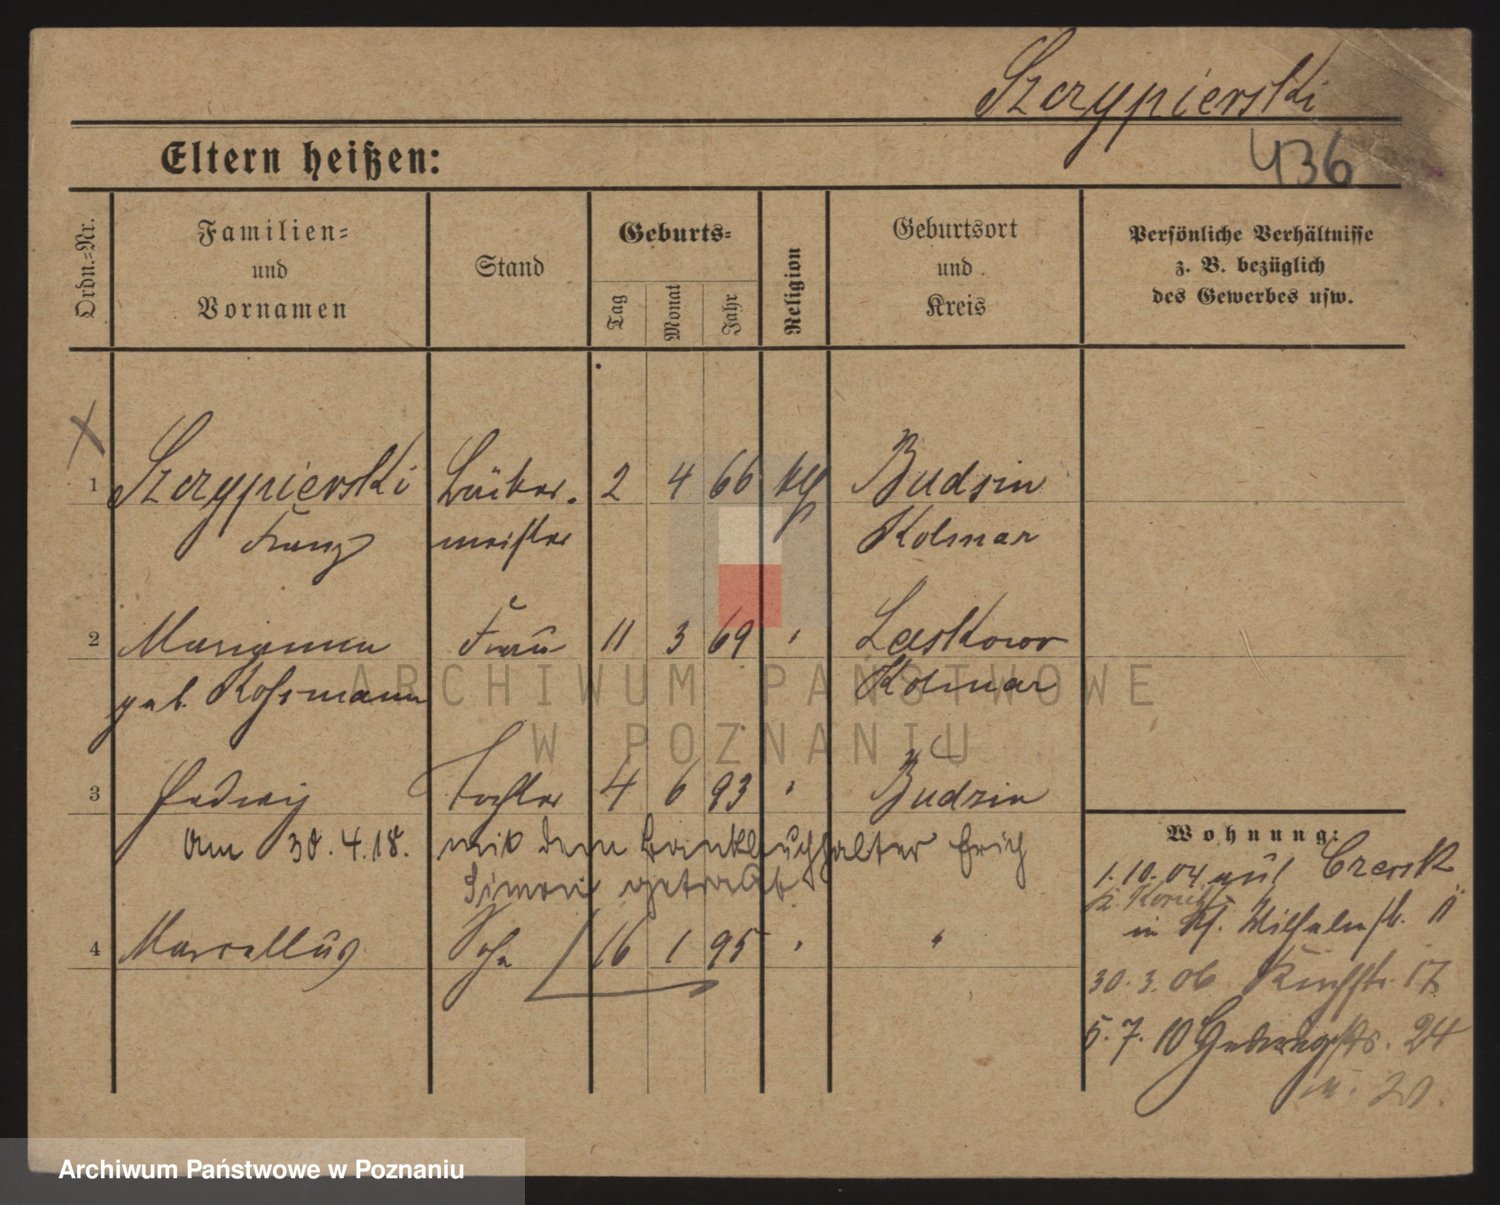 Szczypierski
Eltern heißen:
436
Ordn.-Nr.
Familien-
und
Vornamen
Stand
Geburts-
Tag
Monat
Jahr
Religion
Geburtsort
und
Kreis
Persönliche Verhältnisse
z. B. bezüglich
des Gewerbes usw.
1 Szczypierski Bäcker- 2 4 66 kth Budsin
Franz meister Kolmar
2 Marianna Frau 11 3 69 " Laskowo
geb. Kossmann Kolmar
ARCHIWUM PAŃSTWOWE
W POZNANIU
3 Hedwig Tochter 4 6 93 " Budzin
Am 30.4.18. mit dem Bankbuchhalter Erich
Simon getraut
4 Marcellus Sohn 16 1 95 " "
Wohnung:
1.10.04 aus Czersk
Kr. Konitz
in Kl. Wilhelmstr. 11
30.3.06 Kirchstr. 17
5.7.10 24
u. 20.
Archiwum Państwowe w Poznaniu